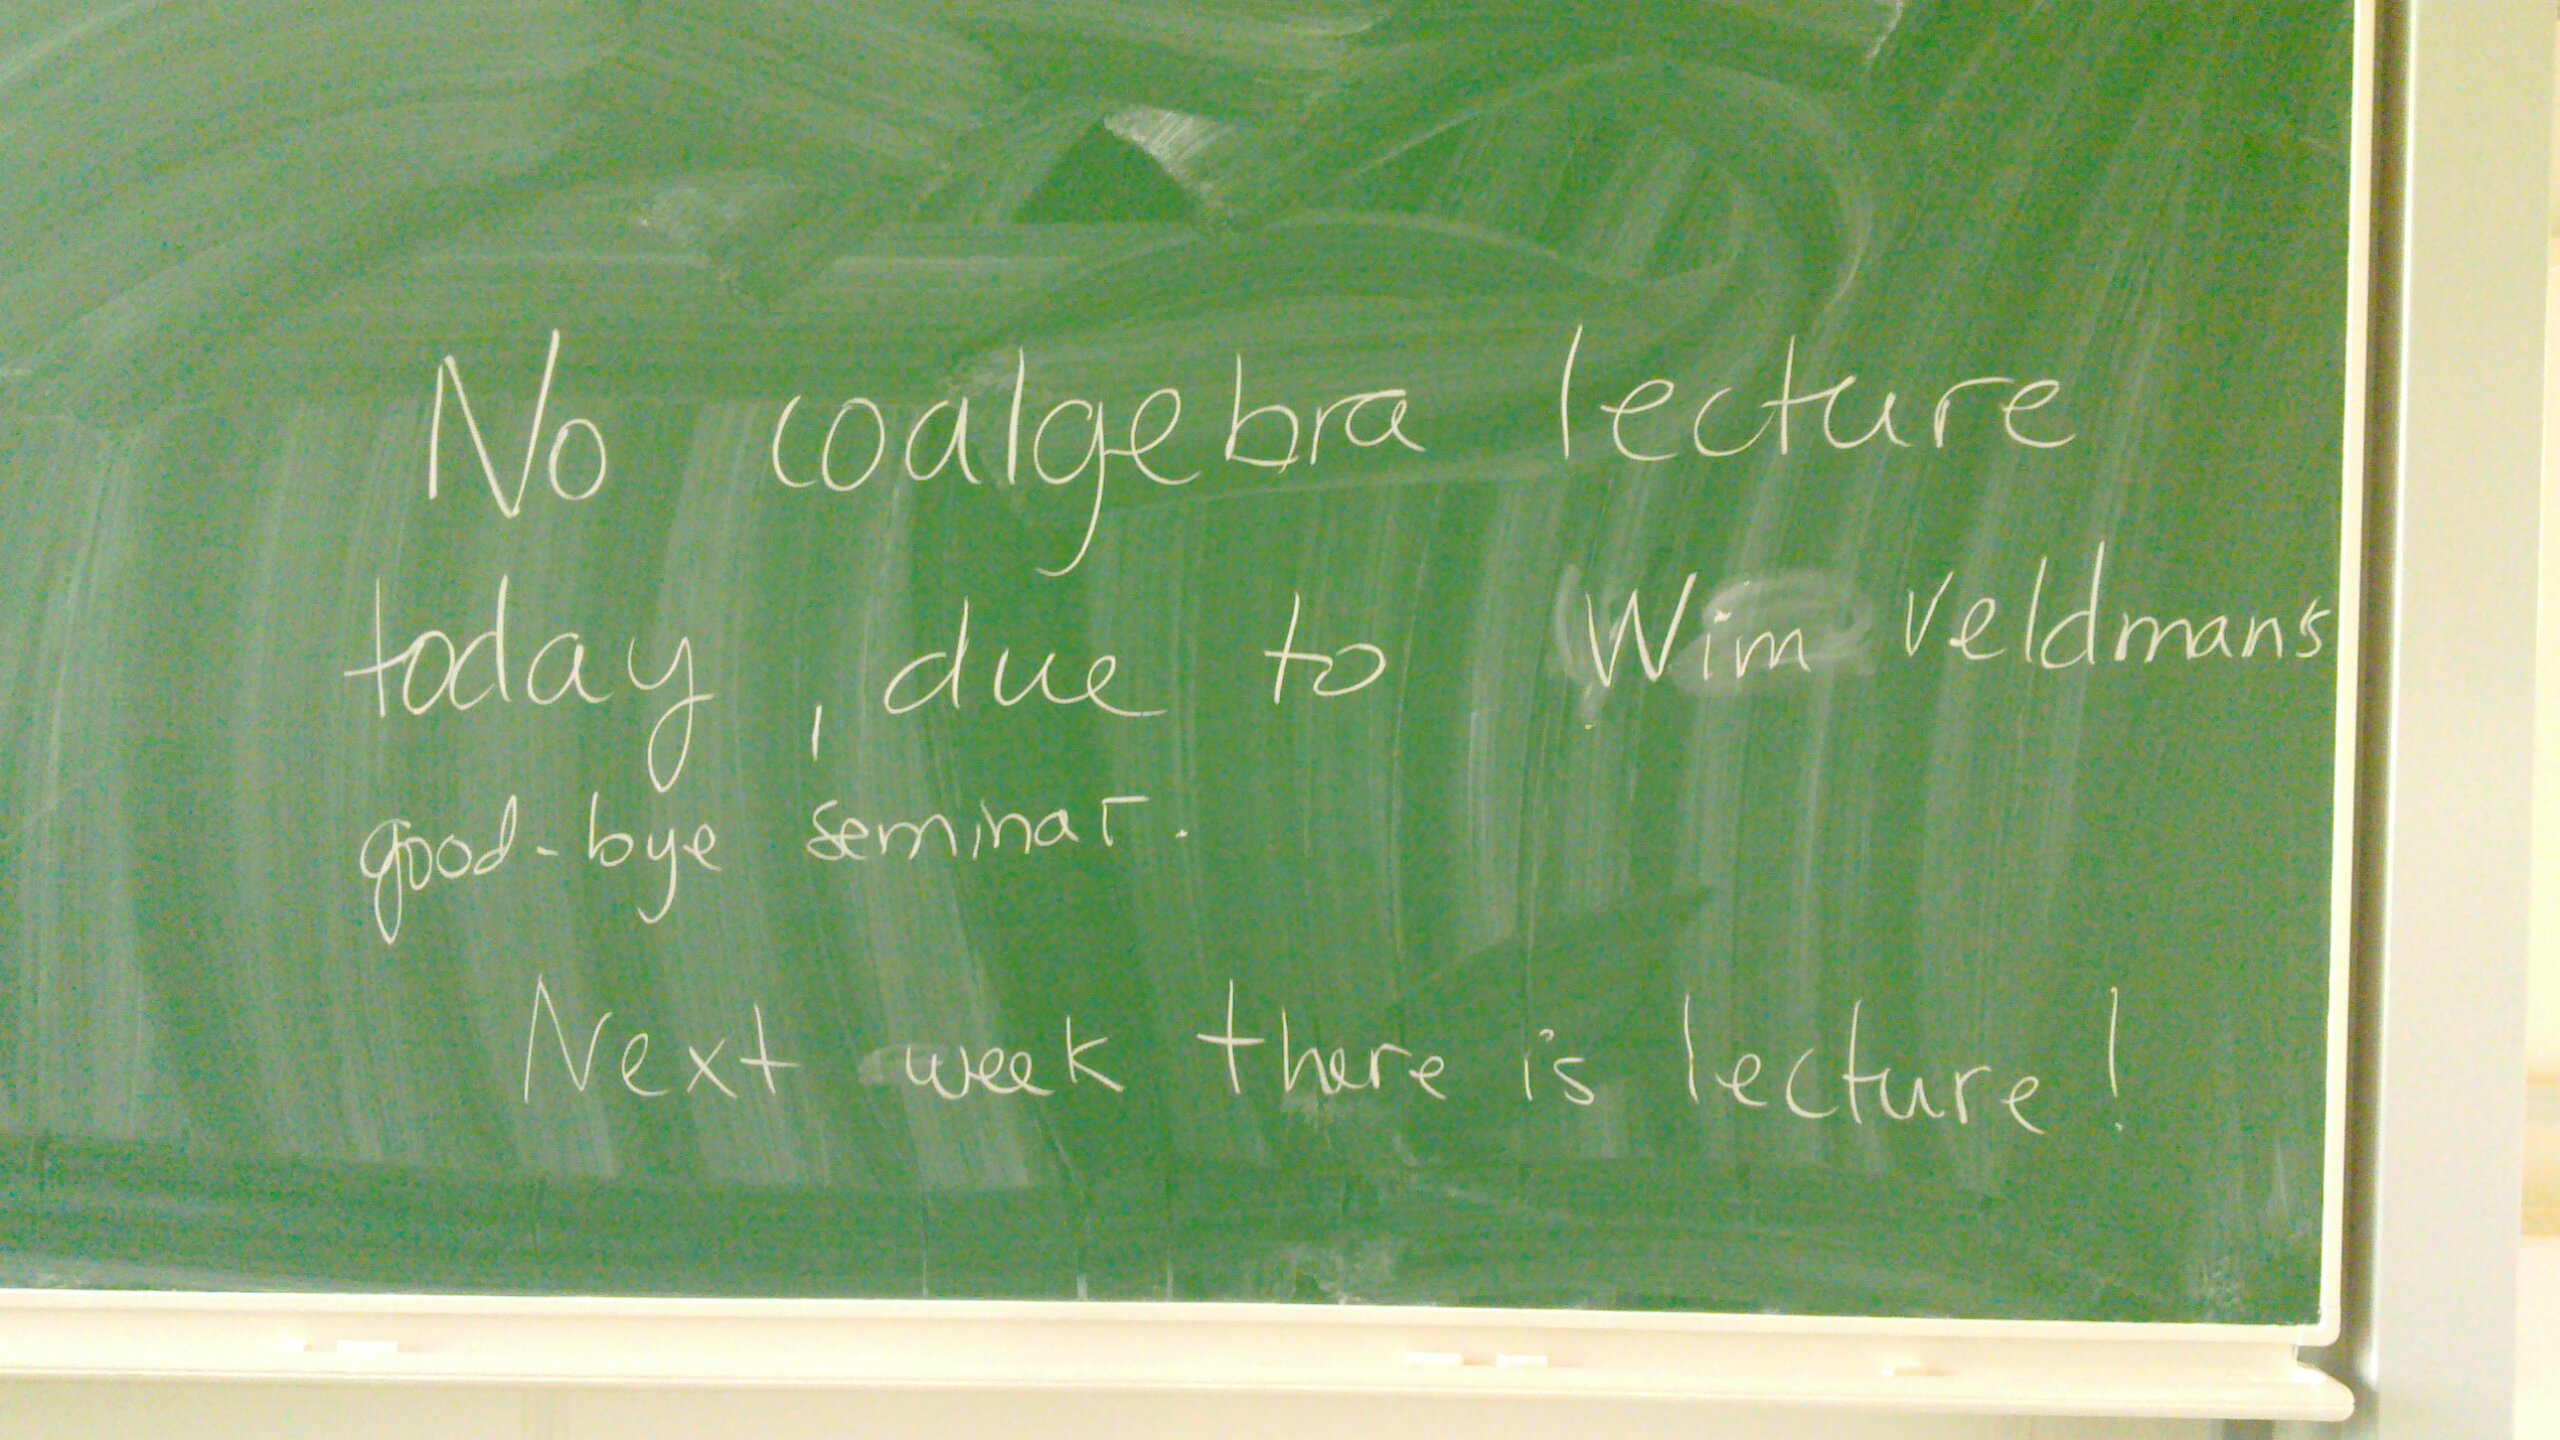 No coalgebra lecture
today, due to Wim Veldman's
good-bye seminar.
Next week there is lecture!